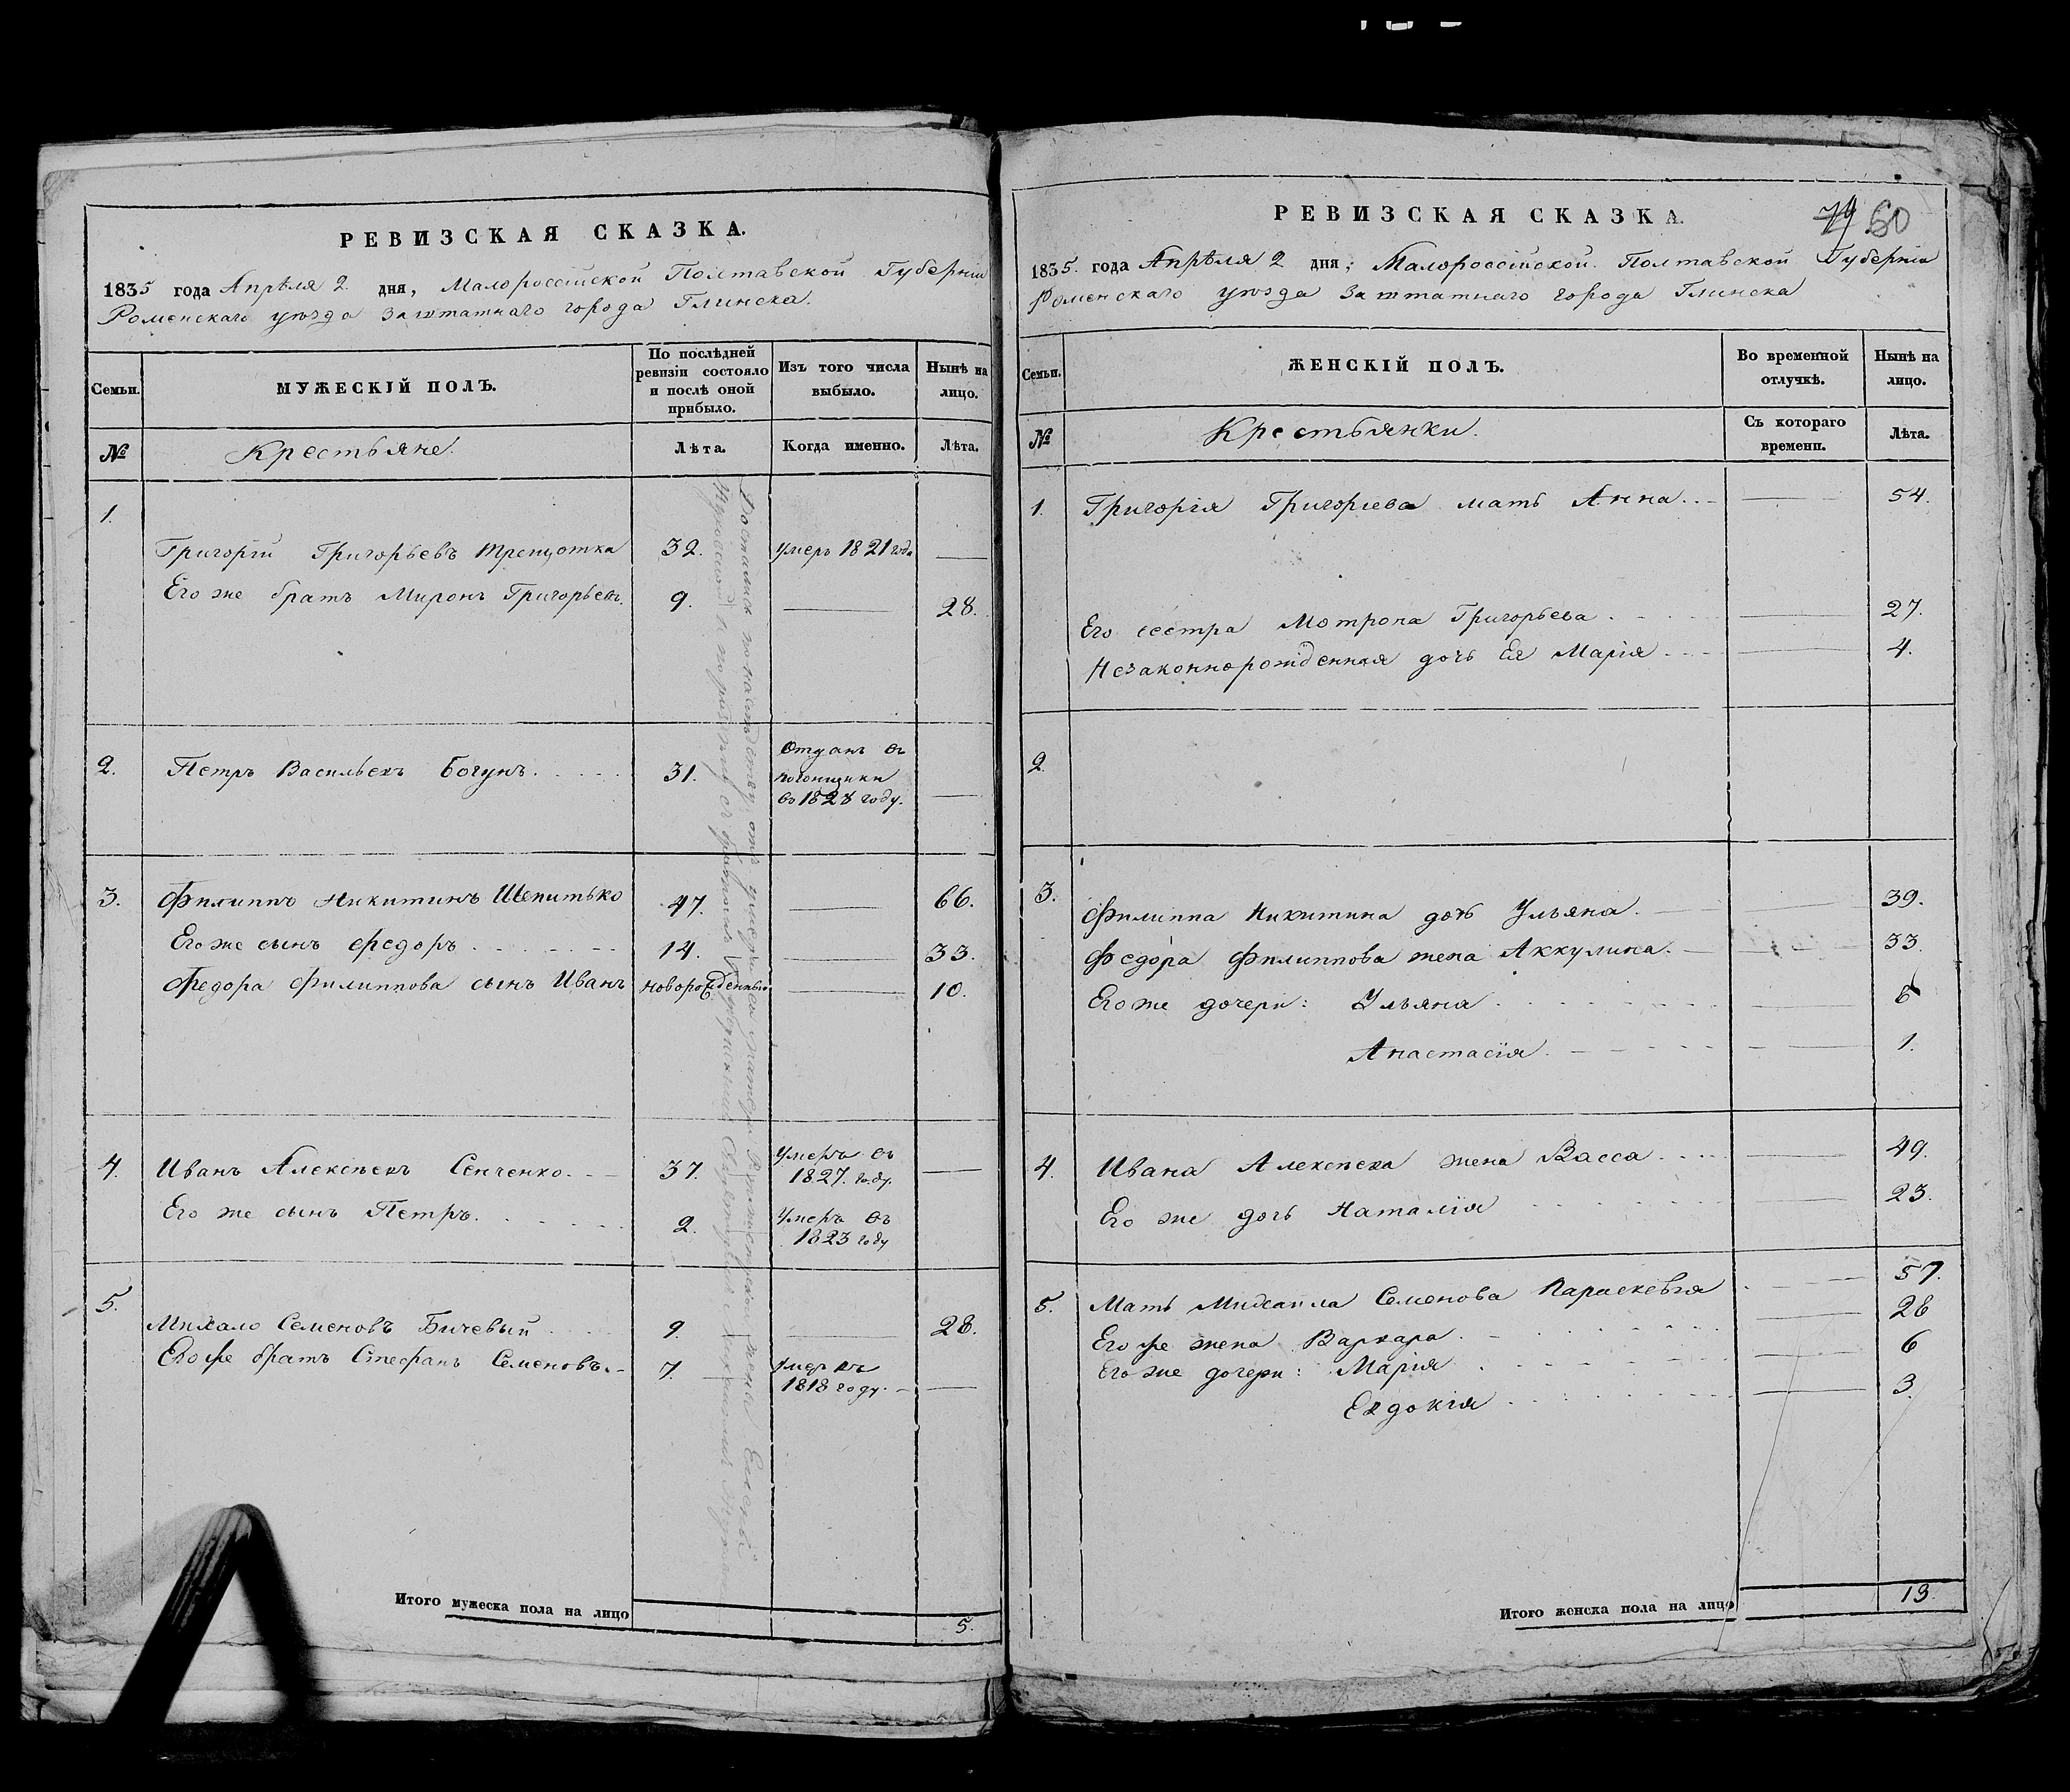 РЕВИЗСКАЯ СКАЗКА.
1835 года Апрѣля 2 дня, Малороссійской Полтавской Губерніи
Роменскаго уѣзда Заштатнаго города Глинска.
Семьи.
МУЖЕСКІЙ ПОЛЪ.
По послѣдней ревизіи состояло и послѣ оной прибыло.
Изъ того числа выбыло.
Нынѣ на лицо.
№
Крестьяне.
Лѣта.
Когда именно.
Лѣта.
1.
Григорій Григорьевъ 32. умеръ 1821 года —
Его же братъ Миронъ Григорьевъ. 9. — 28.
2. Петръ Васильевъ Богунъ. 31. Отданъ въ погонщики въ 1828 году. —
3. Филиппъ Никитинъ Шепитько 47. — 66.
Его же сынъ Федоръ 14. — 33.
Федора Филиппова сынъ Иванъ новорожденный — 10.
4. Иванъ Алексѣевъ Сенченко. 37. Умеръ въ 1827. году. —
Его же сынъ Петръ. 2. Умеръ въ 1823 году
5. Михайло Семеновъ Бичевый 9. — 28.
Его же братъ Стефанъ Семеновъ. 7. Умеръ въ 1818 году. —
Итого мужеска пола на лицо 5.
РЕВИЗСКАЯ СКАЗКА.
79 80
1835. года Апрѣля 2 дня, Малороссійской Полтавской Губерніи
Роменскаго уѣзда Заштатнаго города Глинска
Семьи.
ЖЕНСКІЙ ПОЛЪ.
Во временной отлучкѣ.
Нынѣ на лицо.
№
Крестьянки.
Съ котораго времени.
Лѣта.
1. Григорія Григорьева мать Анна — 54.
Его сестра Мотрона Григорьева — 27.
Незаконнорожденная дочь Ея Марія — 4.
2.
3. Филиппа Никитина дочь Ульяна. — 39.
Федора Филиппова жена Аккулина. — 33.
Его же дочери: Ульяна — 6
Анастасія. — 1.
4. Ивана Алексѣева жена Васса — 49.
Его же дочь Наталія — 23.
5. Мать Михаила Семенова Параскевія — 57.
Его же жена Варвара. — 28
Его же дочери: Марія — 6
Евдокія — 3.
Итого женска пола на лицо 13.